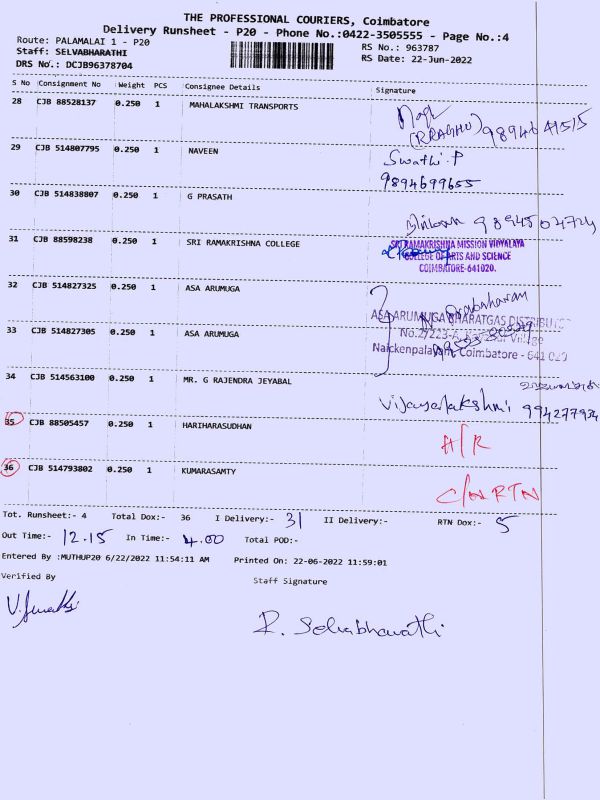 THE PROFESSIONAL COURIERS, Coimbatore
Delivery Runsheet - P20 - Phone No.:0422-3505555 - Page No.:4
Route: PALAMALAI 1 - P20
RS No.: 963787
Staff: SELVABHARATHI
RS Date: 22-Jun-2022
DRS No.: DCJB96378704
S No Consignment No Weight PCS Consignee Details Signature
28 CJB 88528137 0.250 1 MAHALAKSHMI TRANSPORTS
(R.RAGHU) 9894641515
29 CJB 514807795 0.250 1 NAVEEN Swathi.P
9894699655
30 CJB 514838807 0.250 1 G PRASATH
9894502724
31 CJB 88598238 0.250 1 SRI RAMAKRISHNA COLLEGE SRI RAMAKRISHNA MISSION VIDYALAYA
COLLEGE OF ARTS AND SCIENCE
COIMBATORE-641020.
32 CJB 514827325 0.250 1 ASA ARUMUGA
ASA ARUMUGA BHARATGAS DISTRIBUTOR
33 CJB 514827305 0.250 1 ASA ARUMUGA
Naickenpalayam, Coimbatore - 641 020
34 CJB 514563100 0.250 1 MR. G RAJENDRA JEYABAL
Vijayalakshmi 994277934
35 CJB 88505457 0.250 1 HARIHARASUDHAN
A/R
36 CJB 514793802 0.250 1 KUMARASAMTY
C/N RTN
Tot. Runsheet:- 4 Total Dox:- 36 I Delivery:- 31 II Delivery:- RTN Dox:- 5
Out Time:- 12.15 In Time:- 4.00 Total POD:-
Entered By :MUTHUP20 6/22/2022 11:54:11 AM Printed On: 22-06-2022 11:59:01
Verified By
Staff Signature
R. Selvabharathi